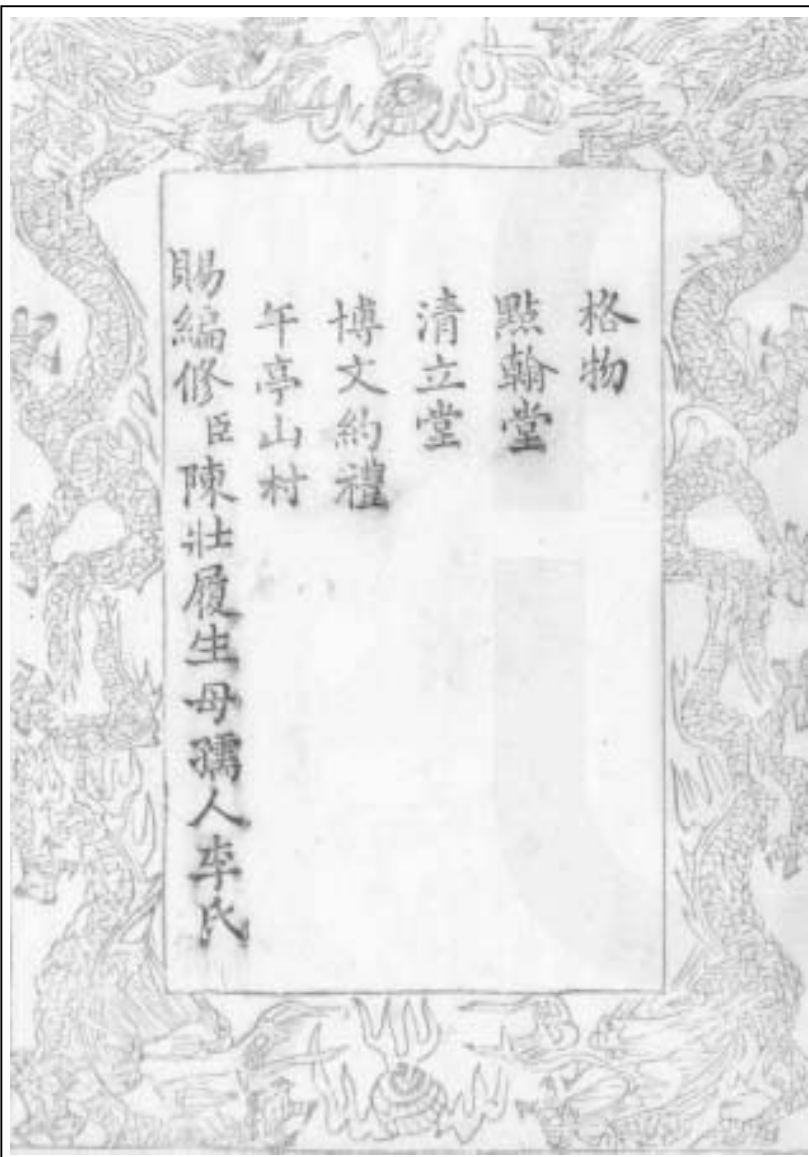 格物
點翰堂
清立堂
博文約禮
午亭山村
賜編修臣陳壯履生母孺人李氏